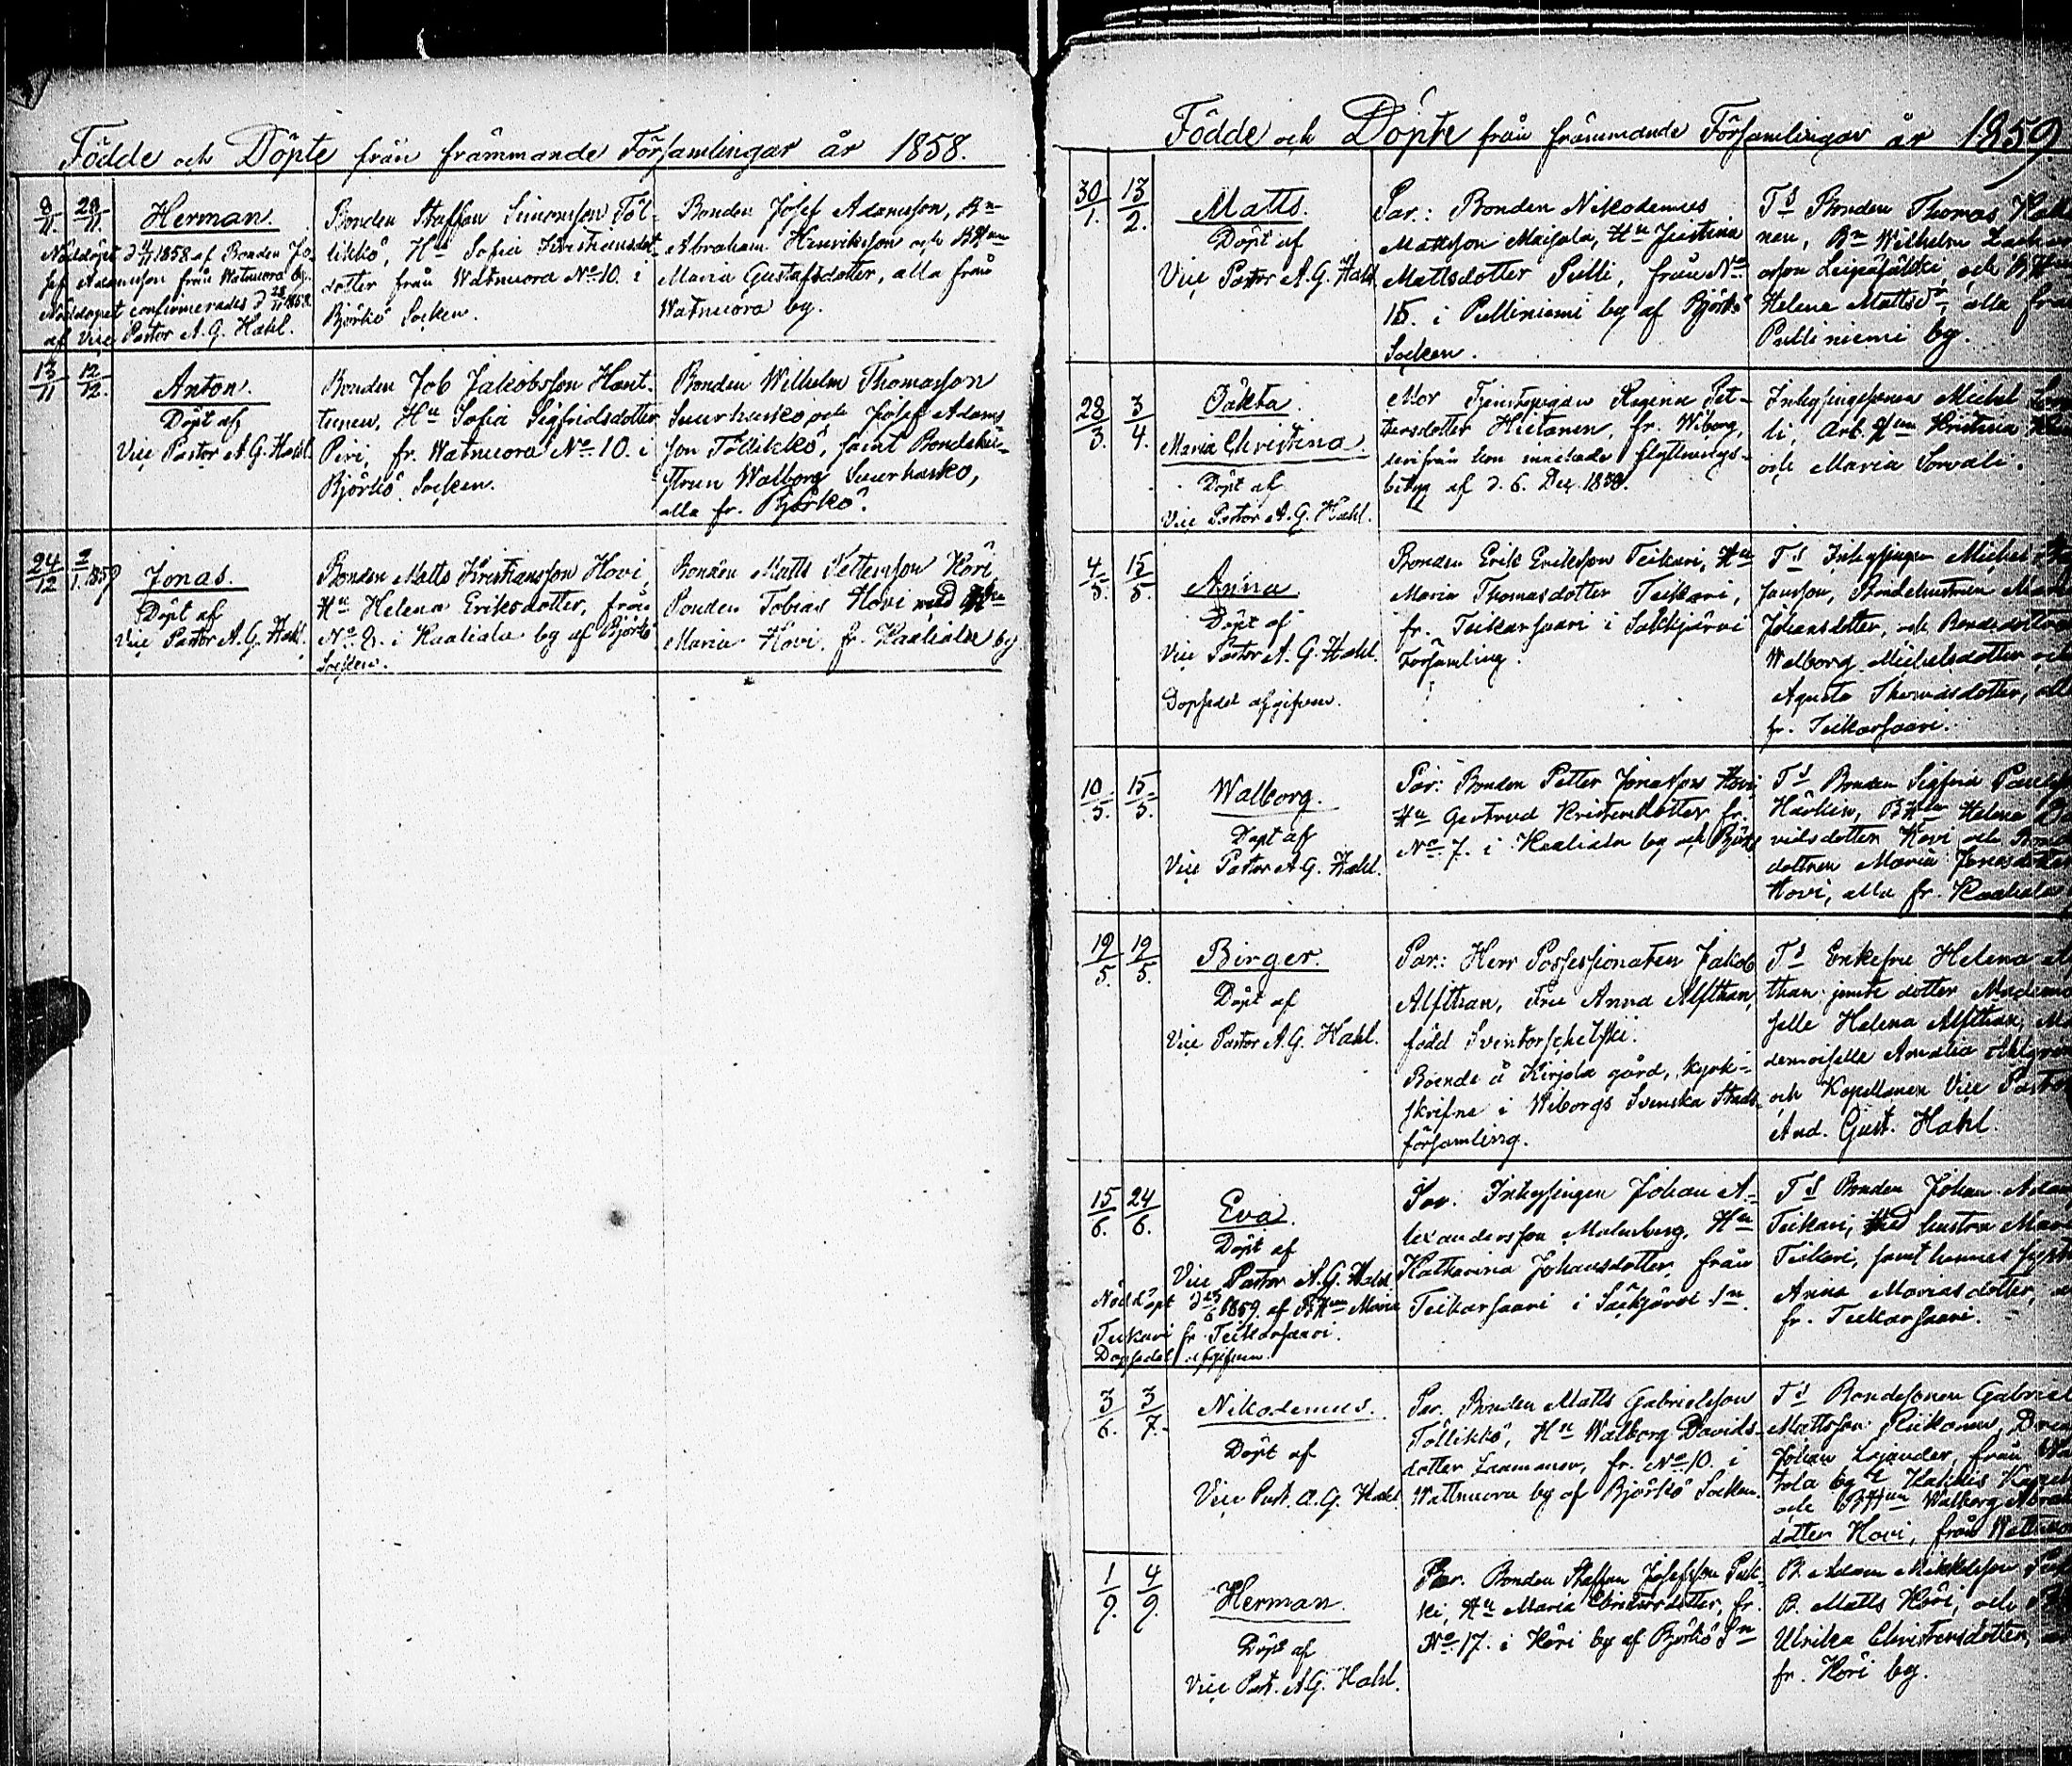 Födde och Döpte från främmande Församlingar år 1858.
8/11. 28/11. Herman.
Nöddöpt d. 9/11 1858 af Bonden Jo-
sef Adamsson från Watnuora by.
Nöddopet confirmerades d. 28/11 1858.
af Vice Pastor A. G. Hahl.
Bonden Staffan Simonsson Töl-
likkö, Hu Sofia Kristiansdot-
dotter från Watnuora No 10. i
Björkö Socken.
Bonden Josef Adamsson, Bn
Abraham Henriksson och BHun
Maria Gustafsdotter, alla från
Watnuora by.
13/11 12/12. Anton.
Döpt af
Vice Pastor A. G. Hahl.
Bonden Job Jakobsson Hant-
tunen, Hu Sofia Sigfridsdotter
Piri, fr. Watnuora No 10. i
Björkö Socken.
Bonden Wilhelm Thomasson
Suurhasko och Josef Adams-
son Töllikkö, samt Bondehu-
strun Walborg Suurhasko,
alla fr. Björkö.
24/12 2/1. 1859 Jonas.
Döpt af
Vice Pastor A. G. Hahl.
Bonden Matts Kristiansson Hovi,
Hu Helena Eriksdotter, från
No 8. i Kaaliala by af Björkö
Socken.
Bonden Matts Pettersson Köri
Bonden Tobias Hovi med Hu
Maria Hovi, fr. Kaaliala by
Födde och Döpte från främmande Församlingar år 1859.
30/1. 13/2. Matts.
Döpt af
Vice Pastor A. G. Hahl.
Par.: Bonden Nikodemus
Mattsson Maisala, Hu Justina
Mattsdotter Pulli, från No
15. i Pulliniemi by af Björkö
Socken.
Ts Bonden Thomas
nen, Bn Wilhelm
och
Helena Mattsdr, alla
Pulliniemi by.
28/3. 3/4. Oäkta
Maria Christina.
Döpt af
Vice Pastor A. G. Hahl.
Mor Tjenstepigan Regina Pet-
tersdotter Hietanen, fr. Wiborg,
derifrån hon innehade flyttnings-
betyg af d. 6. Dec. 1838.
Inhysingesonen Michel
li, Arb. Hun Kristina
och Maria Sorvali.
4/5. 15/5. Anna
Döpt af
Vice Pastor A. G. Hahl.
Dopsedel afgifven.
Bonden Erik Eriksson Teikari, Hu
Maria Thomasdotter Teikari,
fr. Teikarsaari i Säkkjärvi
Församling.
Ts Inhysingen Michel
Jansson, Bondehustrun
Johansdotter, och Bondedottren
Walborg Michelsdotter och
Agneta Thomasdotter,
fr. Teikarsaari.
10/5. 15/5. Walborg.
Döpt af
Vice Pastor A. G. Hahl.
Par: Bonden Petter Jonasson Hovi
Hu Gertrud Kristersdotter fr.
No 7. i Kaaliala by af Björkö
Ts Bonden Sigfrid
Härkin, BHun Helena
vidsdotter Hovi och
dottren Maria Jonasdotter
Hovi, alla fr. Kaaliala
19/5. 19/5. Birger.
Döpt af
Vice Pastor A. G. Hahl.
Par.: Herr Possessionaten Jakob
Alfthan, Fru Anna Alfthan,
född Svintorschetski.
Boende å Kirjola gård, kyrk-
skrifne i Wiborgs Svenska Stads-
församling.
Ts Enkefru Helena
than jemte dotter
selle Helena Alfthan,
demoiselle Amalia
och Kapellanen Vice Pastor
And. Gust. Hahl.
15/6. 24/6. Eva.
Döpt af
Vice Pastor A. G. Hahl
Nöddöpt d. 1859. af BHun Maria
Teikari fr. Teikarsaari.
Dopsedel afgifven.
Par. Inhysingen Johan A-
lexandersson Malmberg, Hu
Katharina Johansdotter, från
Teikarsaari i Säkjärvi Sn.
Ts Bonden Johan
Teikari, med hustru
Teikari, samt hennes
Anna Mariasdotter,
fr. Teikarsaari.
3/6. 3/7. Nikodemus.
Döpt af
Vice Past. A. G. Hahl.
Par. Bonden Matts Gabrielsson
Töllikkö, Hu Walborg Davids-
dotter Laamanen, fr. No 10. i
Wattnuora by af Björkö Socken.
Ts Bondesonen Gabriel
Mattsson
Johan från
tola by
och BHun Walborg
dotter Hovi, från
1/9. 4/9. Herman.
Döpt af
Vice Past. A. G. Hahl.
Par. Bonden Staffan Josefsson
ki, Hu Maria Christersdotter, fr.
No 17. i Köri by af Björkö Sn
B. Adam
B. Matts Köri, och
Ulrika Christersdotter,
fr. Köri by.